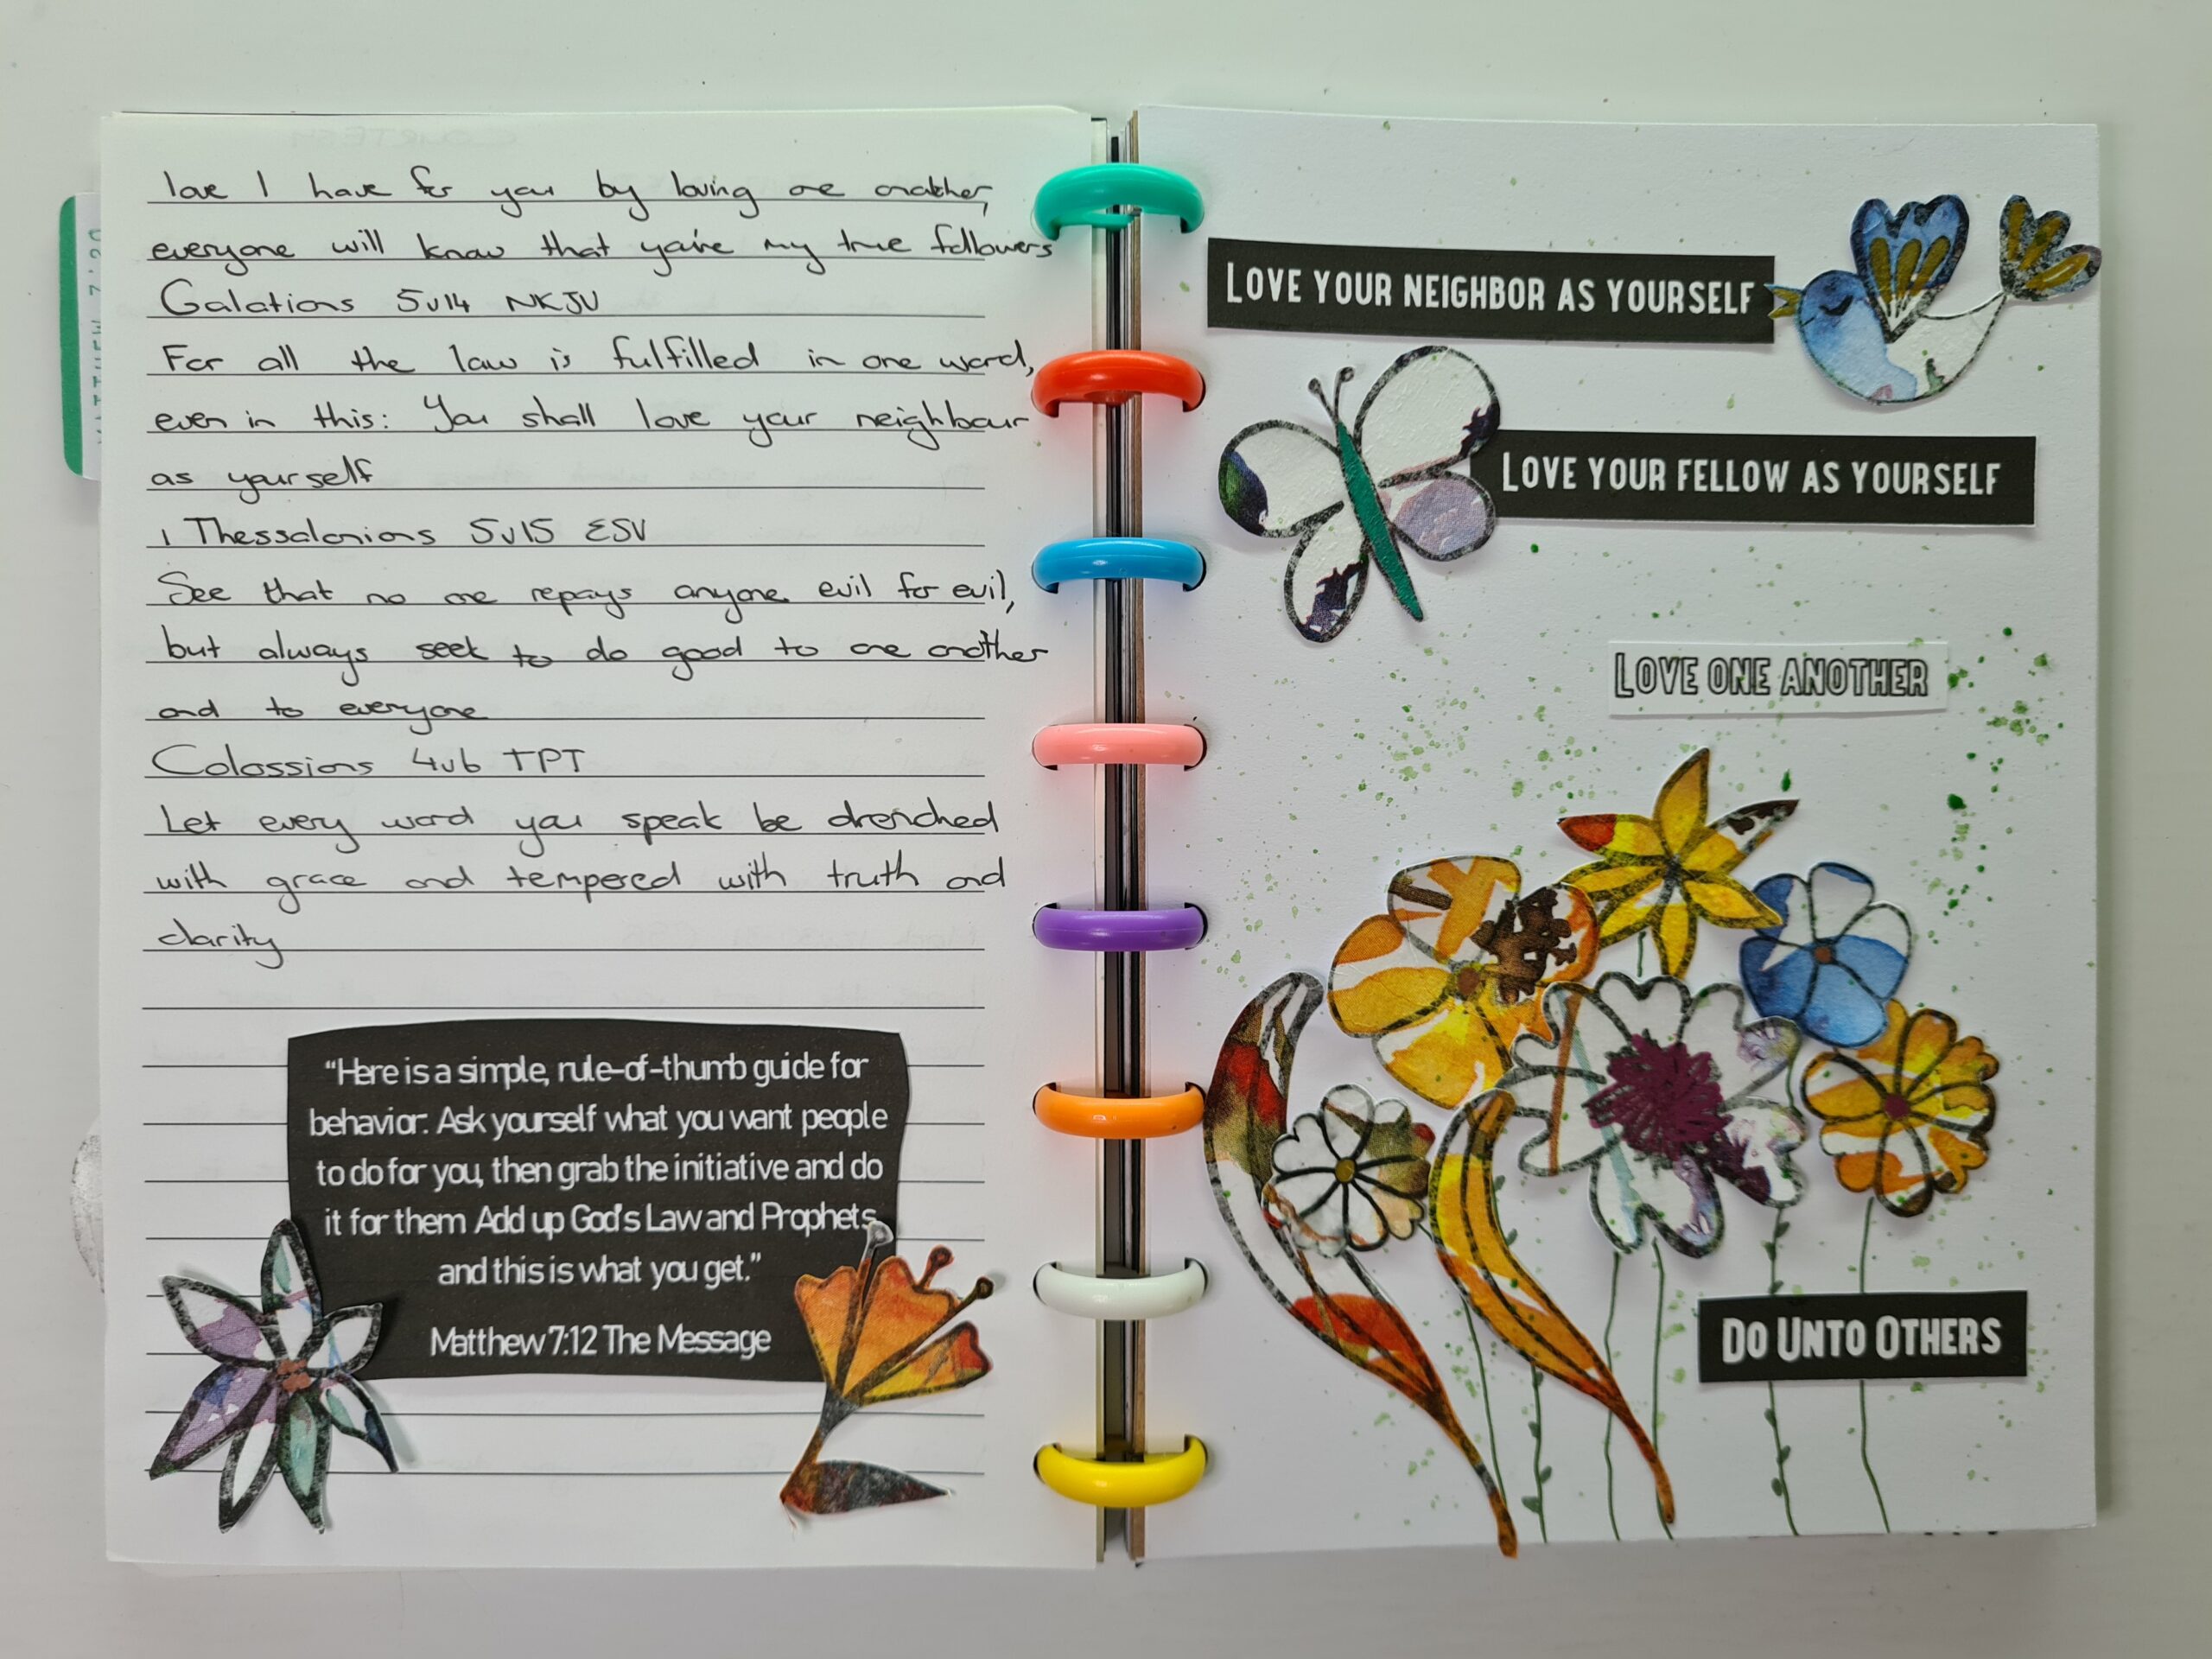 love I have for you by loving one another,
everyone will know that you're my true followers
Galations 5v14 NKJV
For all the law is fulfilled in one word,
even in this: You shall love your neighbour
as yourself
1 Thessalonians 5v15 ESV
See that no one repays anyone evil for evil,
but always seek to do good to one another
and to everyone
Colossians 4v6 TPT
Let every word you speak be drenched
with grace and tempered with truth and
clarity
“Here is a simple, rule-of-thumb guide for
behavior: Ask yourself what you want people
to do for you, then grab the initiative and do
it for them Add up God's Law and Prophets
and this is what you get.”
Matthew 7:12 The Message
LOVE YOUR NEIGHBOR AS YOURSELF
LOVE YOUR FELLOW AS YOURSELF
LOVE ONE ANOTHER
DO UNTO OTHERS